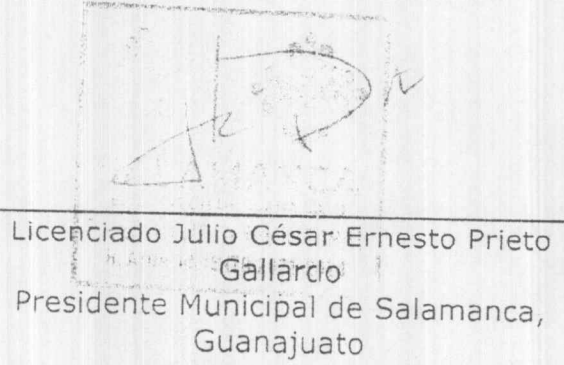 Licenciado Julio César Ernesto Prieto
Gallardo
Presidente Municipal de Salamanca,
Guanajuato